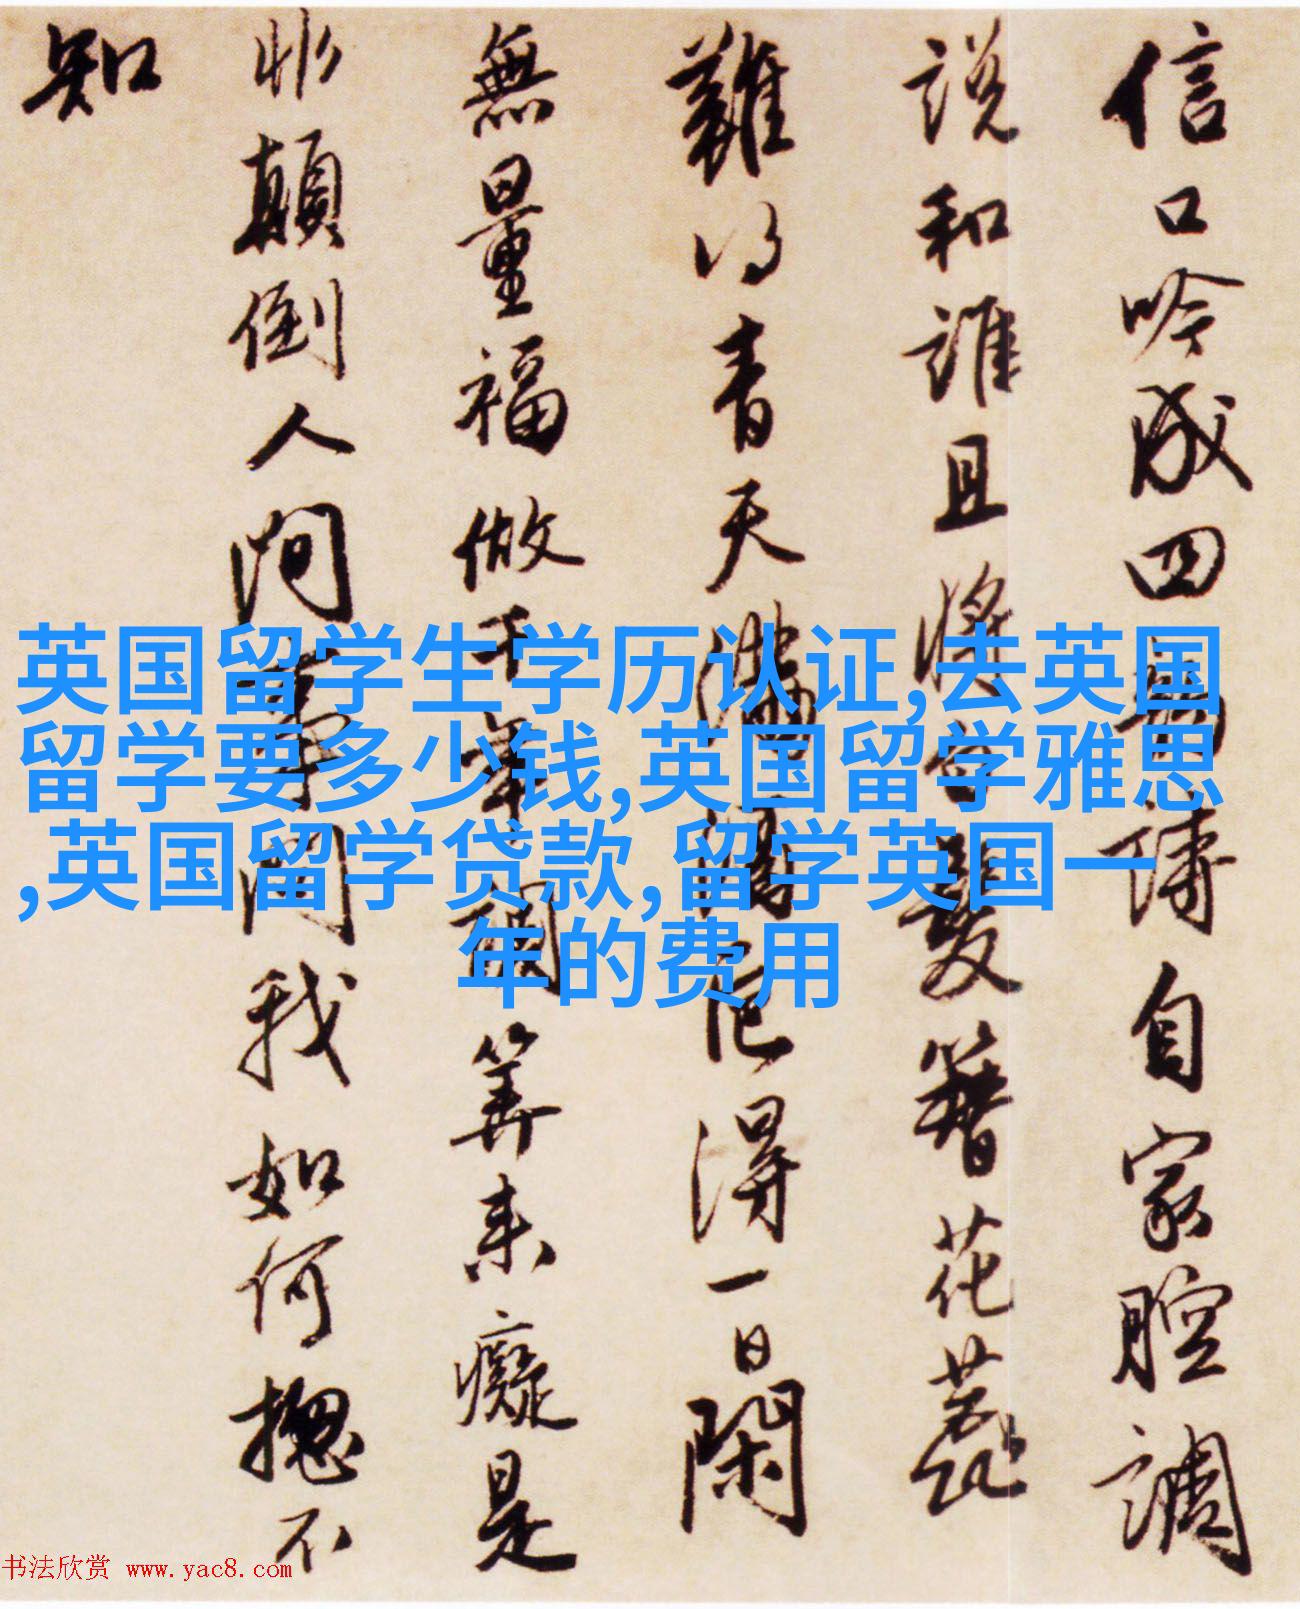 信口吟成四詩自家腔調
說和誰且將白髮簪花蕊
難得青天滿卮得一日閑
無量福做千年調算来癡是
非顛倒人間事問我如何摠不
知
英国留学生学历认证,去英国
留学要多少钱,英国留学雅思
,英国留学贷款,留学英国一
年的费用
书法欣赏 www.yac8.com